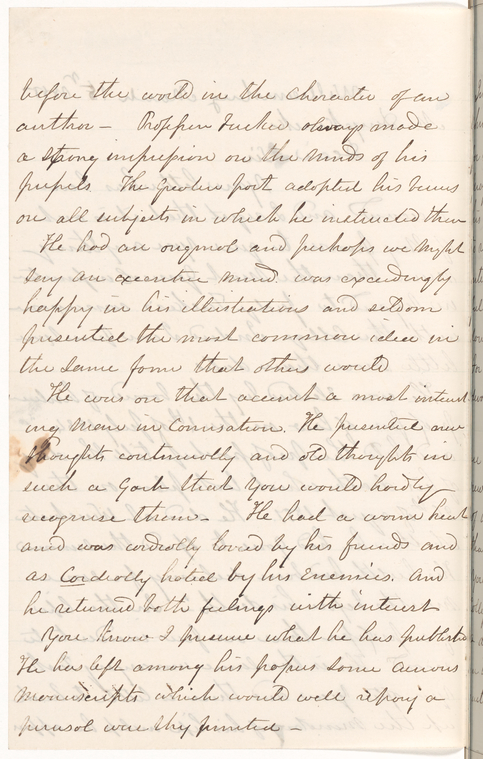 before the world in the character of an
author - Professor Tucker always made
a strong impression on the minds of his
pupils. The greater part adopted his views
on all subjects in which he instructed them
He had an original and perhaps we might
say an eccentric mind. was exceedingly
happy in his illustrations and seldom
presented the most common idea in
the same form that others would
He was on that account a most interest-
ing man in conversation. He presented new
thoughts continually and old thoughts in
such a garb that you would hardly
recognise them - He had a warm heart
and was cordially loved by his friends and
as cordially hated by his enemies. and
he returned both feelings with interest
You know I presume what he has published
He has left among his papers some curious
manuscripts which would well repay a
perusal were they printed -